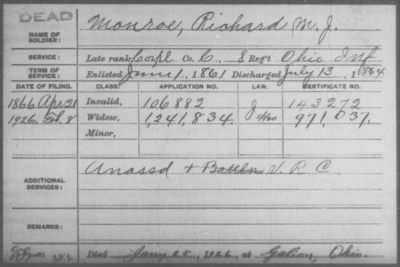 DEAD
NAME OF SOLDIER: Monroe, Richard M. J.
SERVICE: Late rank, Corpl Co. C, 8 Reg't Ohio Inf
TERM OF SERVICE: Enlisted June 1, 1861 Discharged July 13, 1864
DATE OF FILING. CLASS. APPLICATION NO. LAW. CERTIFICATE NO.
1866 Apr 21 Invalid, 106882 143272
1926 Feb. 8 Widow, 1,241,834. 971037.
Minor,
ADDITIONAL SERVICES: Unassd + V. R. C
REMARKS:
Died Jany 25, 1926, at Galion, Ohio.